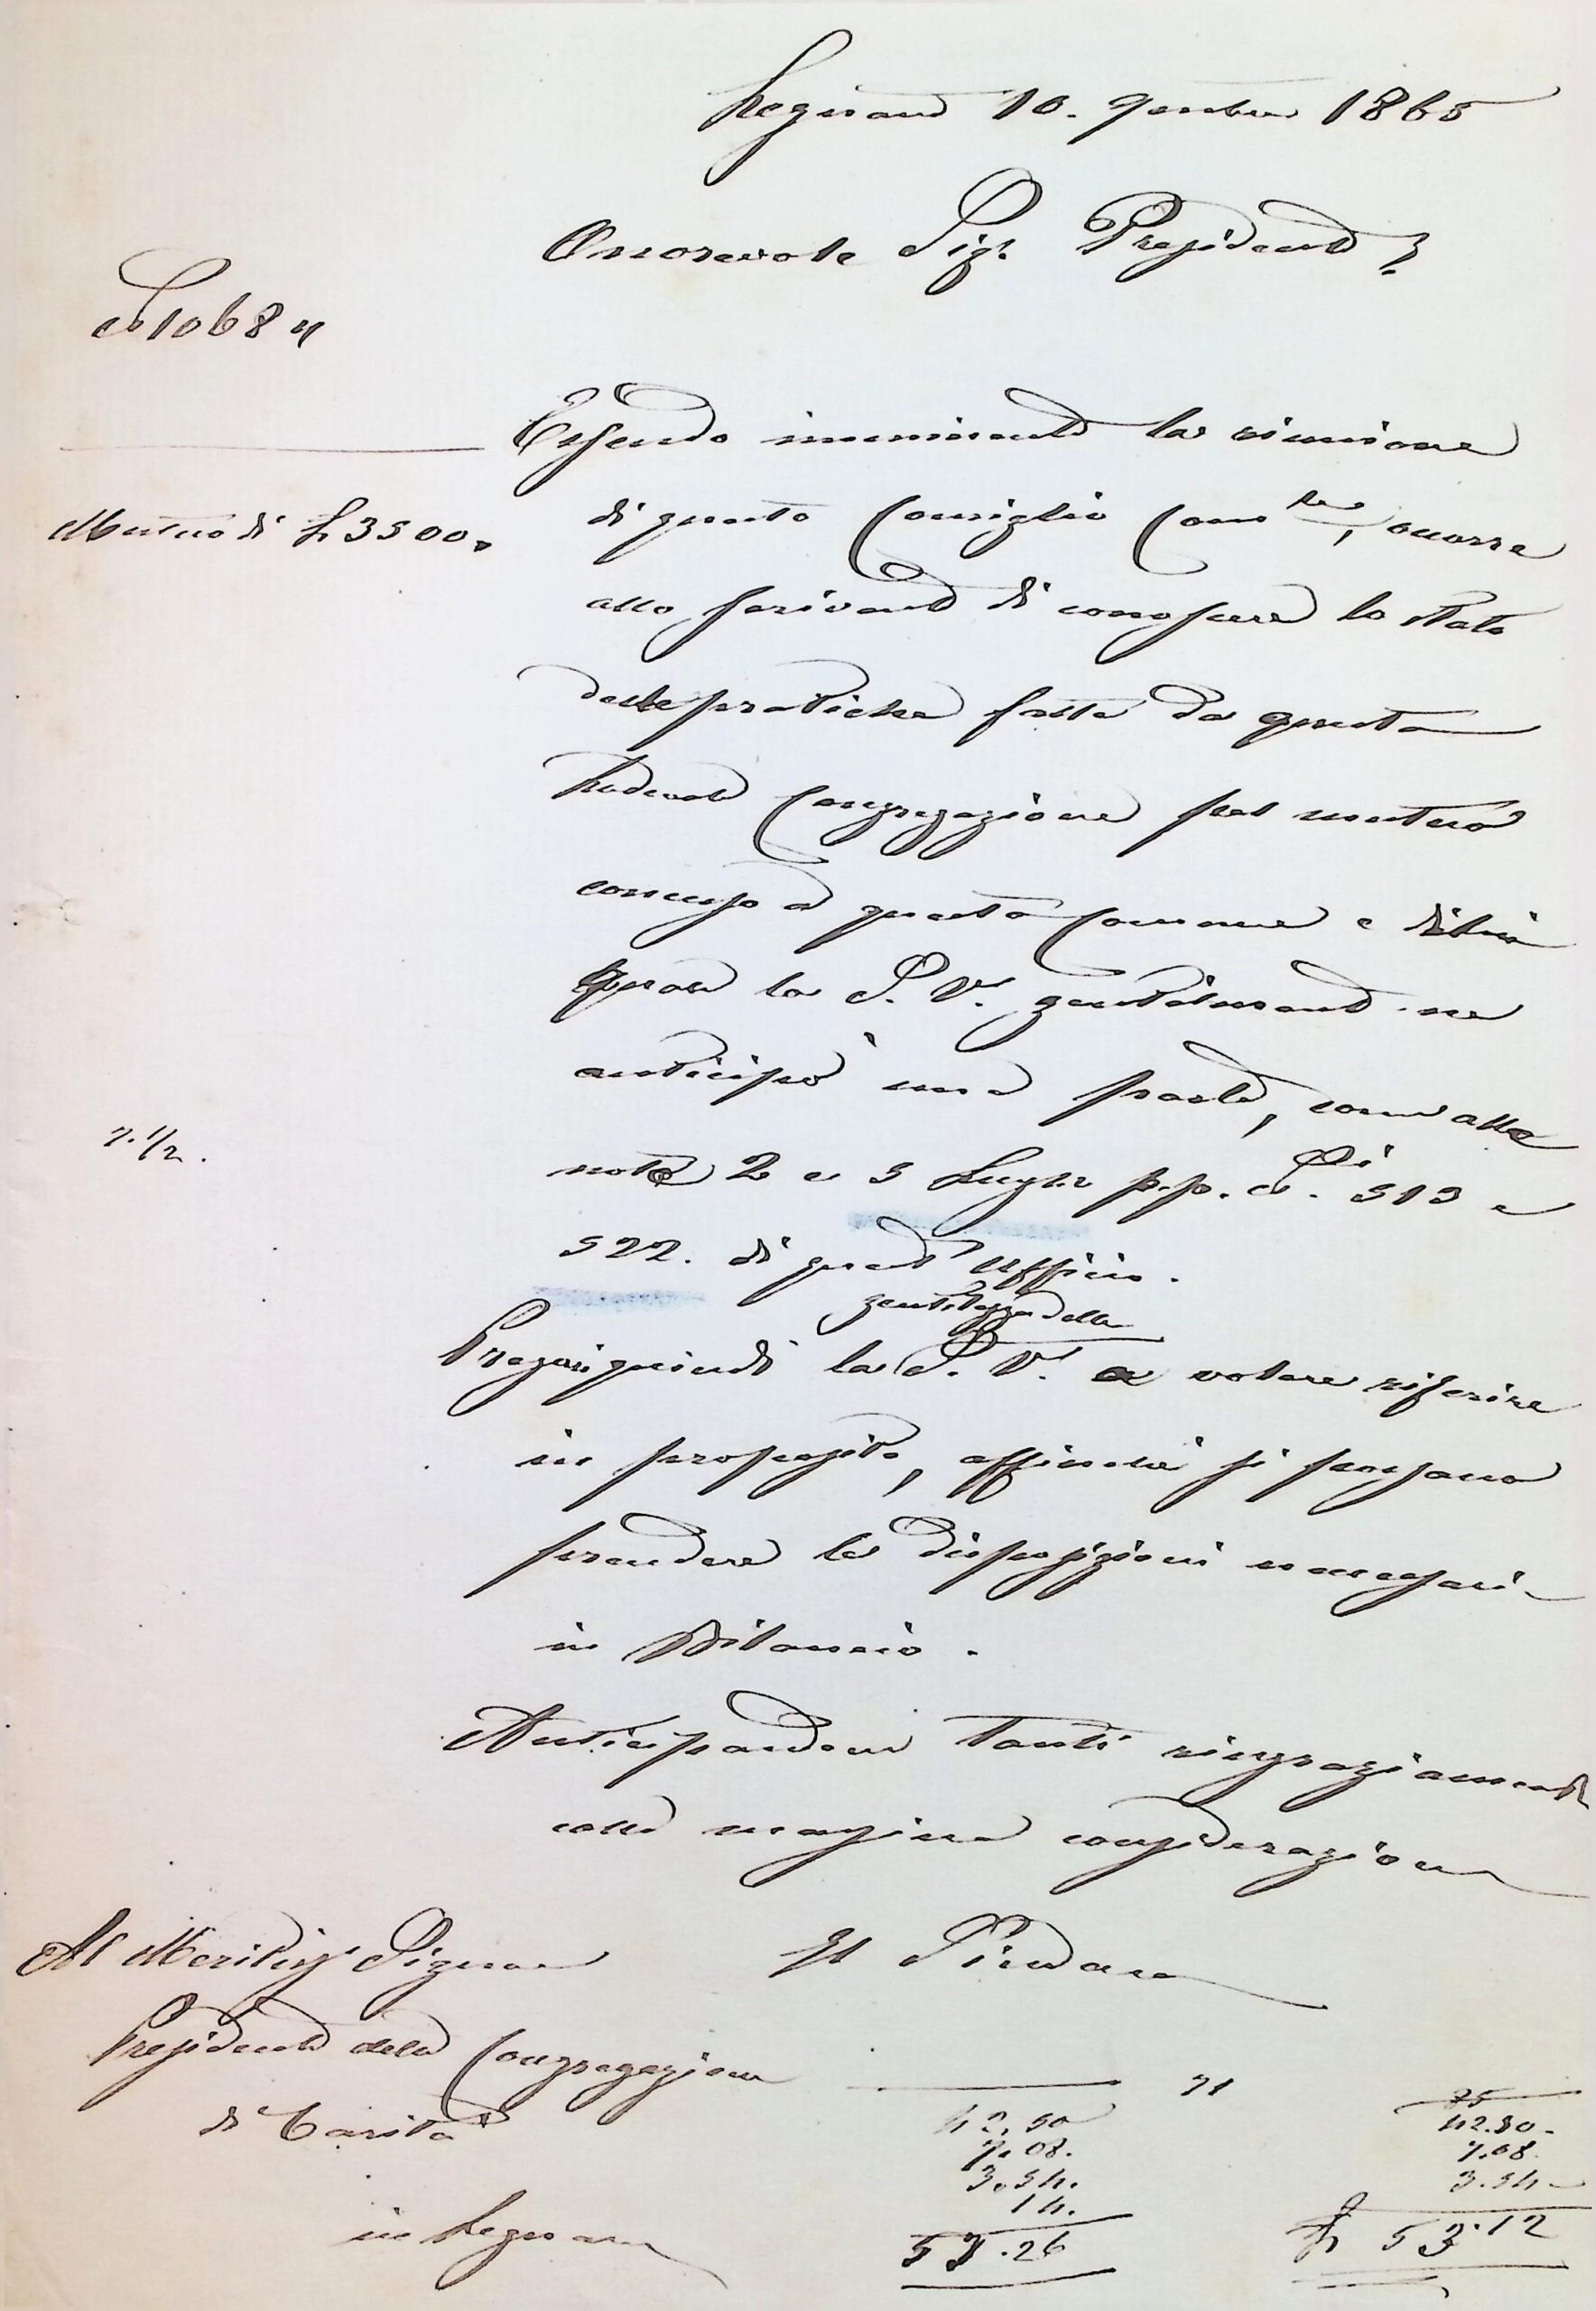 Legnano 10. 9mbre 1865
Onorevole Sig. Presidente
N 1068
Essendo imminente la riunione
Mutuo di L 3500
di questo Consiglio Com le, occorre
allo scrivente di conoscere lo stato
delle pratiche fatte da questa
Lodevole Congregazione pel mutuo
concesso a questa Comune e di cui
la S. V. gentilmente ne
anticipò una parte, come alle
7. 1/2.
note 2 e 5 Luglio p.p. Ni. 513 e
522. di quest' ufficio.
gentilezza della
Pregasi quindi la S. V. a volere riferire
in proposito, affinchè si possano
prendere le disposizioni necessarie
in Bilancio.
Anticipandone tanti ringraziamenti
colla massima considerazione
Al Meritiss Signor
Il Sindaco
Presidente della Congregazione
di Carità
in Legnano
71
75
42,50
7.08.
3.54.
14.
53.26
42.50.
7.08
3.54
L 53.12